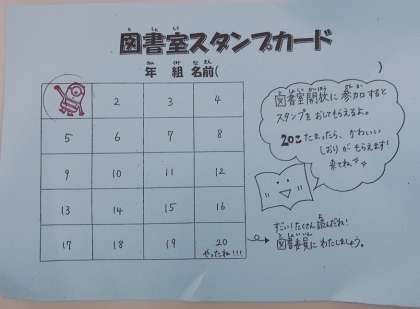 図書室スタンプカード
年 組 名前( )
2 3 4
5 6 7 8
9 10 11 12
13 14 15 16
17 18 19 20
やったね!!!
図書室開放に参加すると
スタンプをおしてもらえるよ。
20こたまったら、かわいい
しおりがもらえます!
来てね
すごい!たくさん読んだね!
図書委員にわたしましょう。